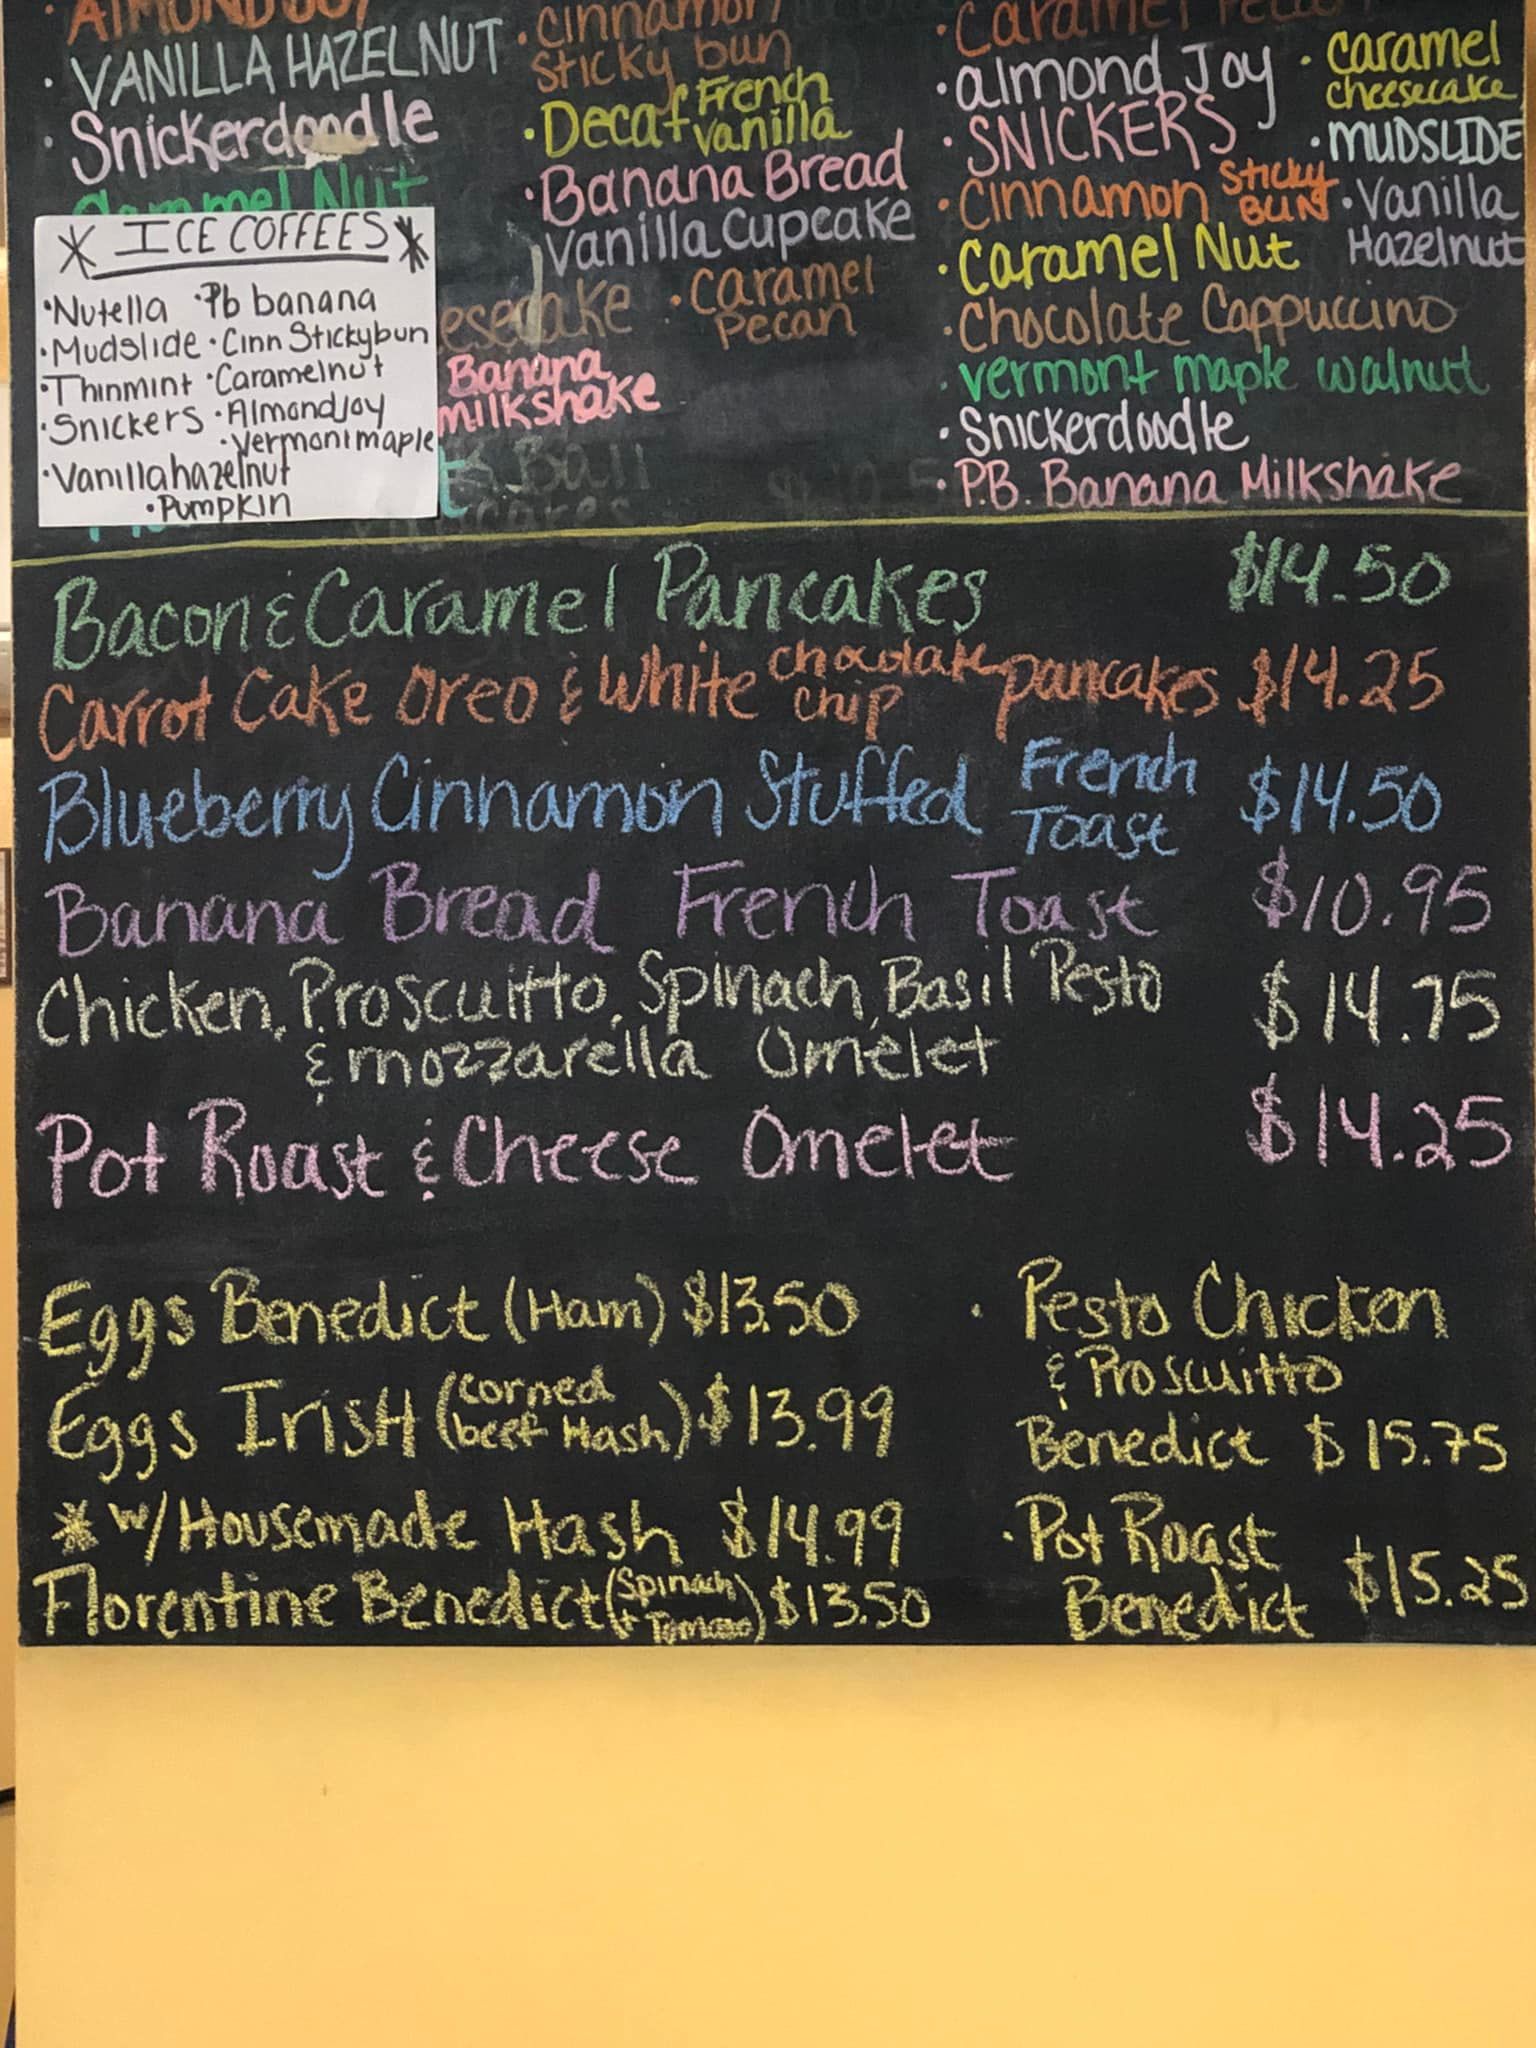 ALMOND JOY
• VANILLA HAZELNUT
• Snickerdoodle
Caramel Nut
* ICE COFFEES *
• Nutella • Pb banana
• Mudslide • Cinn Stickybun
• Thinmint • Caramelnut
• Snickers • Almondjoy
• Vermontmaple
• Vanillahazelnut
• Pumpkin
• cinnamon
sticky bun
• Decaf French
vanilla
• Banana Bread
Vanilla Cupcake
• Caramel
Pecan
Banana
milkshake
Caramel Pecan
• almond Joy
• SNICKERS
• Cinnamon Sticky
BUN
• Caramel Nut
• Chocolate Cappuccino
• vermont maple walnut
• Snickerdoodle
• P.B. Banana Milkshake
• caramel
cheesecake
• MUDSLIDE
• Vanilla
Hazelnut
Bacon & Caramel Pancakes $14.50
Carrot Cake Oreo & White chocolate chip pancakes $14.25
Blueberry Cinnamon Stuffed French Toast $14.50
Banana Bread French Toast $10.95
Chicken, Proscuitto, Spinach, Basil Pesto $14.75
& mozzarella Omelet
Pot Roast & Cheese Omelet $14.25
Eggs Benedict (Ham) $13.50
Eggs Irish (corned beef Hash) $13.99
* w/Housemade Hash $14.99
Florentine Benedict (Spinach + Tomato) $13.50
• Pesto Chicken
& Proscuitto
Benedict $15.75
• Pot Roast
Benedict $15.25